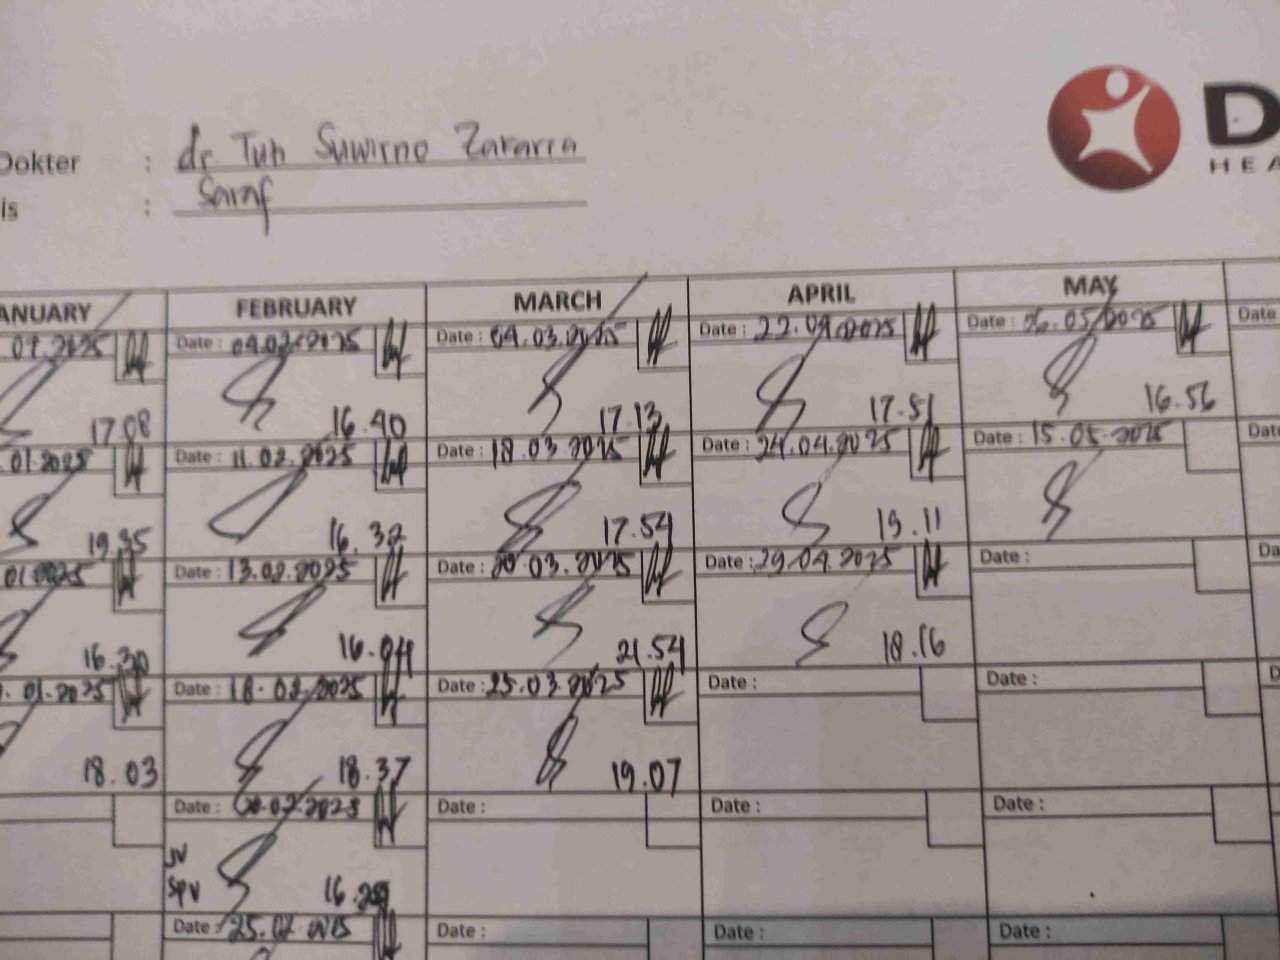 Dokter : dr Tuh Suwirno Zararra
is : Saraf
D
HEA
ANUARY FEBRUARY MARCH APRIL MAY
Date : 04.02.2025 Date : 04.03.2025 Date : 22.04.2025 Date : 06.05.2025 Date
17.08 16.40 17.13 17.51 16.56
.01.2025 Date : 11.02.2025 Date : 18.03.2025 Date : 24.04.2025 Date : 15.05.2025 Dat
19.35 16.32 17.54 19.11
01.2025 Date : 13.02.2025 Date : 20.03.2025 Date : 29.04.2025 Date : Da
16.30 16.04 21.54 18.16
.01.2025 Date : 18.02.2025 Date : 25.03.2025 Date : Date : D
18.03 18.37 19.07
Date : 20.02.2025 Date : Date : Date :
JV
SPV 16.
Date : 25.02 Date : Date : Date :